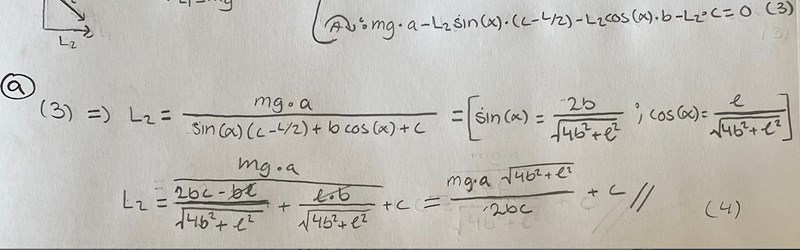 L₂
A↓: mg·a-L₂sin(α)·(c-L/2)-L₂cos(α)·b-L₂·c=0 (3)
(a)
(3) => L₂ = mg·a / (sin(α)(c-L/2)+b cos(α)+c) = [sin(α) = 2b/√(4b²+ℓ²) ; cos(α)= ℓ/√(4b²+ℓ²)]
L₂ = mg·a / ((2bc-bℓ)/√(4b²+ℓ²) + ℓ·b/√(4b²+ℓ²) + c) = mg·a √(4b²+ℓ²) / 2bc + c // (4)